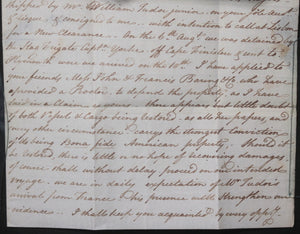 shipped by Mr. William Tudor junior on your
& risque & consigned to me with intention to call at Lisbon
for a New Clearance. On the 6th Augt we was detained by
the Stag Frigate Capt. Yorke off Cape Finisterre & sent to
Plymouth were we arrived on the 18th. I have applied to
your friends Mess John & Francis Baring & Co. who have
provided a Proctor to defend the property, as I have
laid in a Claim there appears but little doubt
of both Vessel & Cargo being restored as all our papers, and
every other circumstance carrys the strongest Conviction
of its being Bona fide American property. Should it
be restored there is little or no hope of recovering damages
of course shall without delay proceed on our intended
voyage. we are in daily expectation of Mr. Tudors
arrival from France & his presence will strengthen our
evidence. I shall keep you acquainted by every oppty.